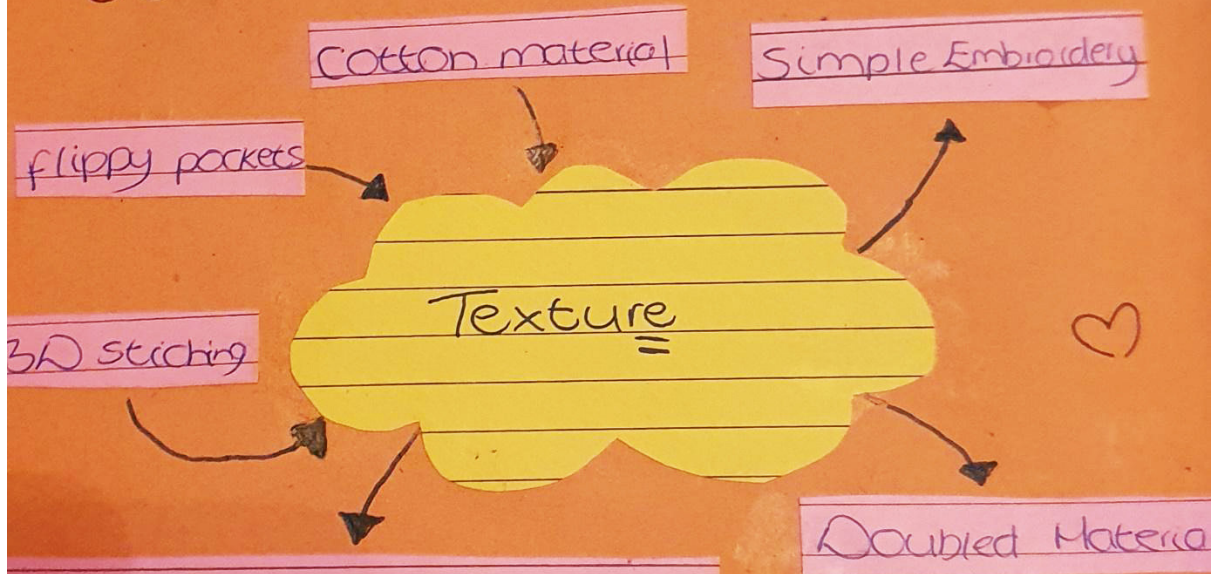 Cotton material
Simple Embroidery
flippy pockets
Texture
3D stiching
Doubled Materia